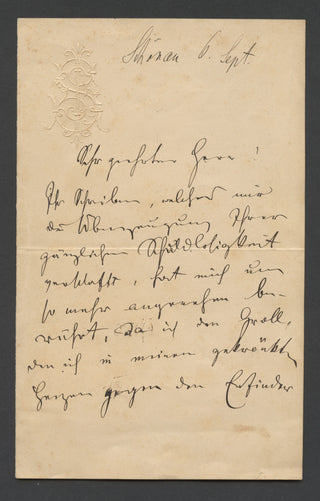 Schönau 6. Sept.
Sehr geehrter Herr!
Ihr Schreiben, welches mir
die Überzeugung Ihrer
gänzlichen Schuldlosigkeit
verschafft, hat mich um
so mehr angenehm be-
rührt, da ich den Groll,
den ich in meinem gekränkten
Herzen gegen den Erfinder